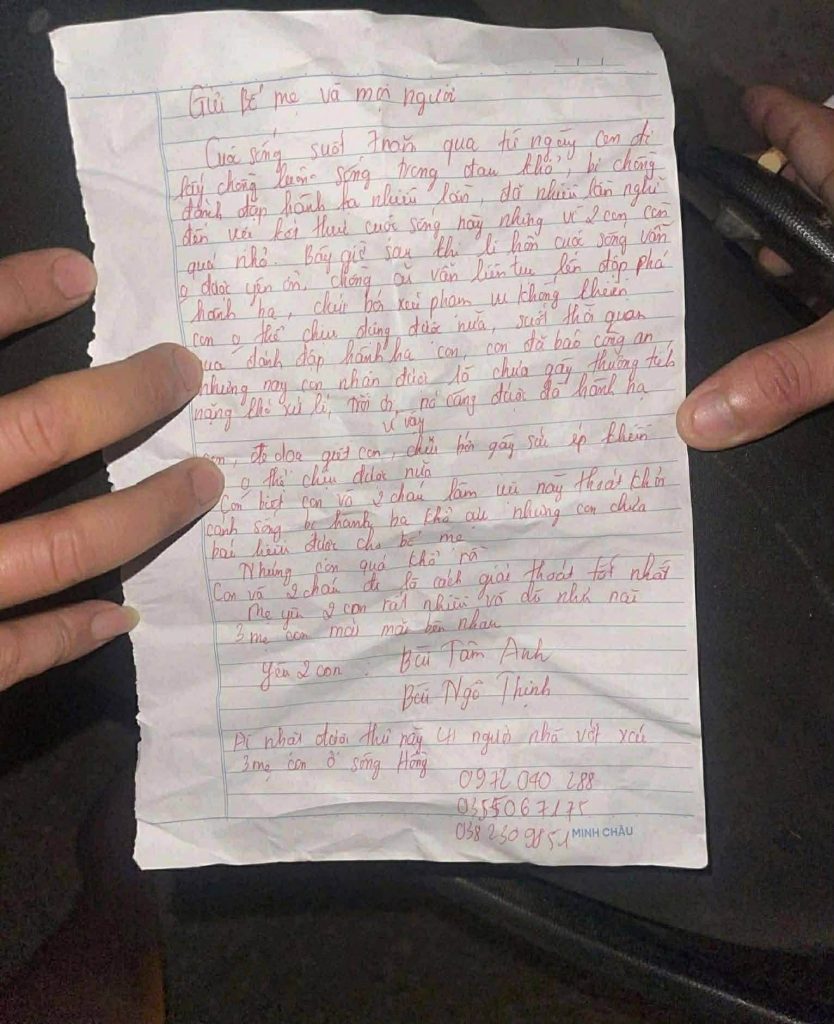 Gửi Bố mẹ và mọi người
Cuộc sống suốt 7 năm qua từ ngày con đi
lấy chồng luôn sống trong đau khổ, bị chồng
đánh đập hành hạ nhiều lần, đã nhiều lần nghĩ
đến việc kết thúc cuộc sống này nhưng vì 2 con còn
quá nhỏ. Bây giờ sau khi li hôn cuộc sống vẫn
o được yên ổn, chồng cũ vẫn liên tục đập phá
hành hạ, chửi bới xúc phạm khiến
con o thể chịu đựng được nữa, suốt thời gian
qua đánh đập hành hạ con, con đã báo công an
nhưng nay con nhận được là chưa gây thương tích
nặng khó xử lí, nó càng được đà hành hạ
vì vậy
con, đe doạ giết con, chửi bới gây sức ép khiến
o thể chịu được nữa
Con biết con và 2 cháu làm việc này thoát khỏi
cảnh sống bị hành hạ khổ cực nhưng con chưa
báo hiếu được cho bố mẹ
Nhưng con quá khổ rồi
Con và 2 cháu đi là cách giải thoát tốt nhất
Mẹ yêu 2 con rất nhiều
3 mẹ con mãi mãi bên nhau
Yêu 2 con : Bùi Tâm Anh
Bùi Ngô Thịnh
Ai nhặt được thư này người nhà vớt xác
3 mẹ con ở sông Hồng
0972 040 288
0355067175
038 230 9851
MINH CHÂU